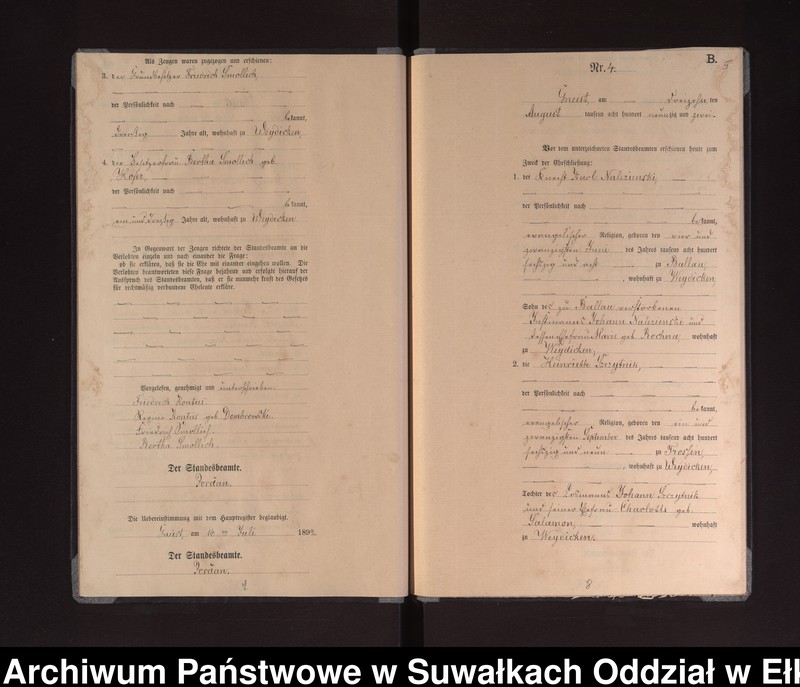 Als Zeugen waren zugezogen und erschienen:
3. der Grundbesitzer Friedrich Smollich
der Persönlichkeit nach
bekannt,
dreißig Jahre alt, wohnhaft zu Weydicken
4. der Besitzerfrau Bertha Smollich geb.
der Persönlichkeit nach
bekannt,
ein und dreißig Jahre alt, wohnhaft zu Weydicken
In Gegenwart der Zeugen richtete der Standesbeamte an die
Verlobten einzeln und nach einander die Frage:
ob sie erklären, daß sie die Ehe mit einander eingehen wollen. Die
Verlobten beantworteten diese Frage bejahend und erfolgte hierauf der
Ausspruch des Standesbeamten, daß er sie nunmehr kraft des Gesetzes
für rechtmäßig verbundene Eheleute erkläre.
Vorgelesen, genehmigt und unterschrieben
Friedrich Kontus
Regine Kontus geb Dombrowski
Friedrich Smollich
Bertha Smollich
Der Standesbeamte.
Jordan.
Die Uebereinstimmung mit dem Hauptregister beglaubigt.
am 10 ten Juli 1892.
Der Standesbeamte.
Jordan.
B.
5
Nr. 4.
am dreizehn ten
August tausend acht hundert neunzig und zwei
Vor dem unterzeichneten Standesbeamten erschienen heute zum
Zweck der Eheschließung:
1. der Knecht Karl
der Persönlichkeit nach
bekannt,
evangelischer Religion, geboren den vier und
zwanzigsten Juni des Jahres tausend acht hundert
sechszig und acht zu Ballau
, wohnhaft zu Weydicken
Sohn des zu Ballau verstorbenen
Instmanns Johann und
dessen Ehefrau Marie geb wohnhaft
zu Weydicken
2. die Heinriette Sczytnik,
der Persönlichkeit nach
bekannt,
evangelischer Religion, geboren den ein und
zwanzigsten September des Jahres tausend acht hundert
sechszig und neun zu
, wohnhaft zu Weydicken,
Tochter des Losmanns Johann Sczytnik
und seiner Ehefrau Charlotte geb.
Salamon, wohnhaft
zu Weydicken.
8
Archiwum Państwowe w Suwałkach Oddział w Ełk